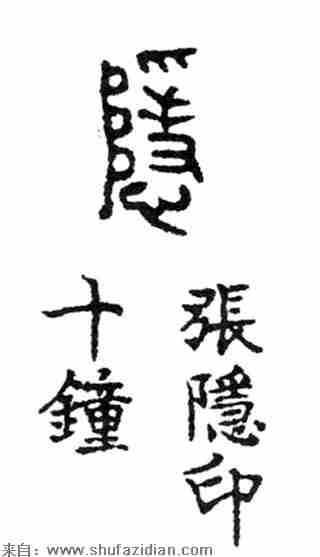 隱
張隱印
十鐘
来自：www.shufazidian.com